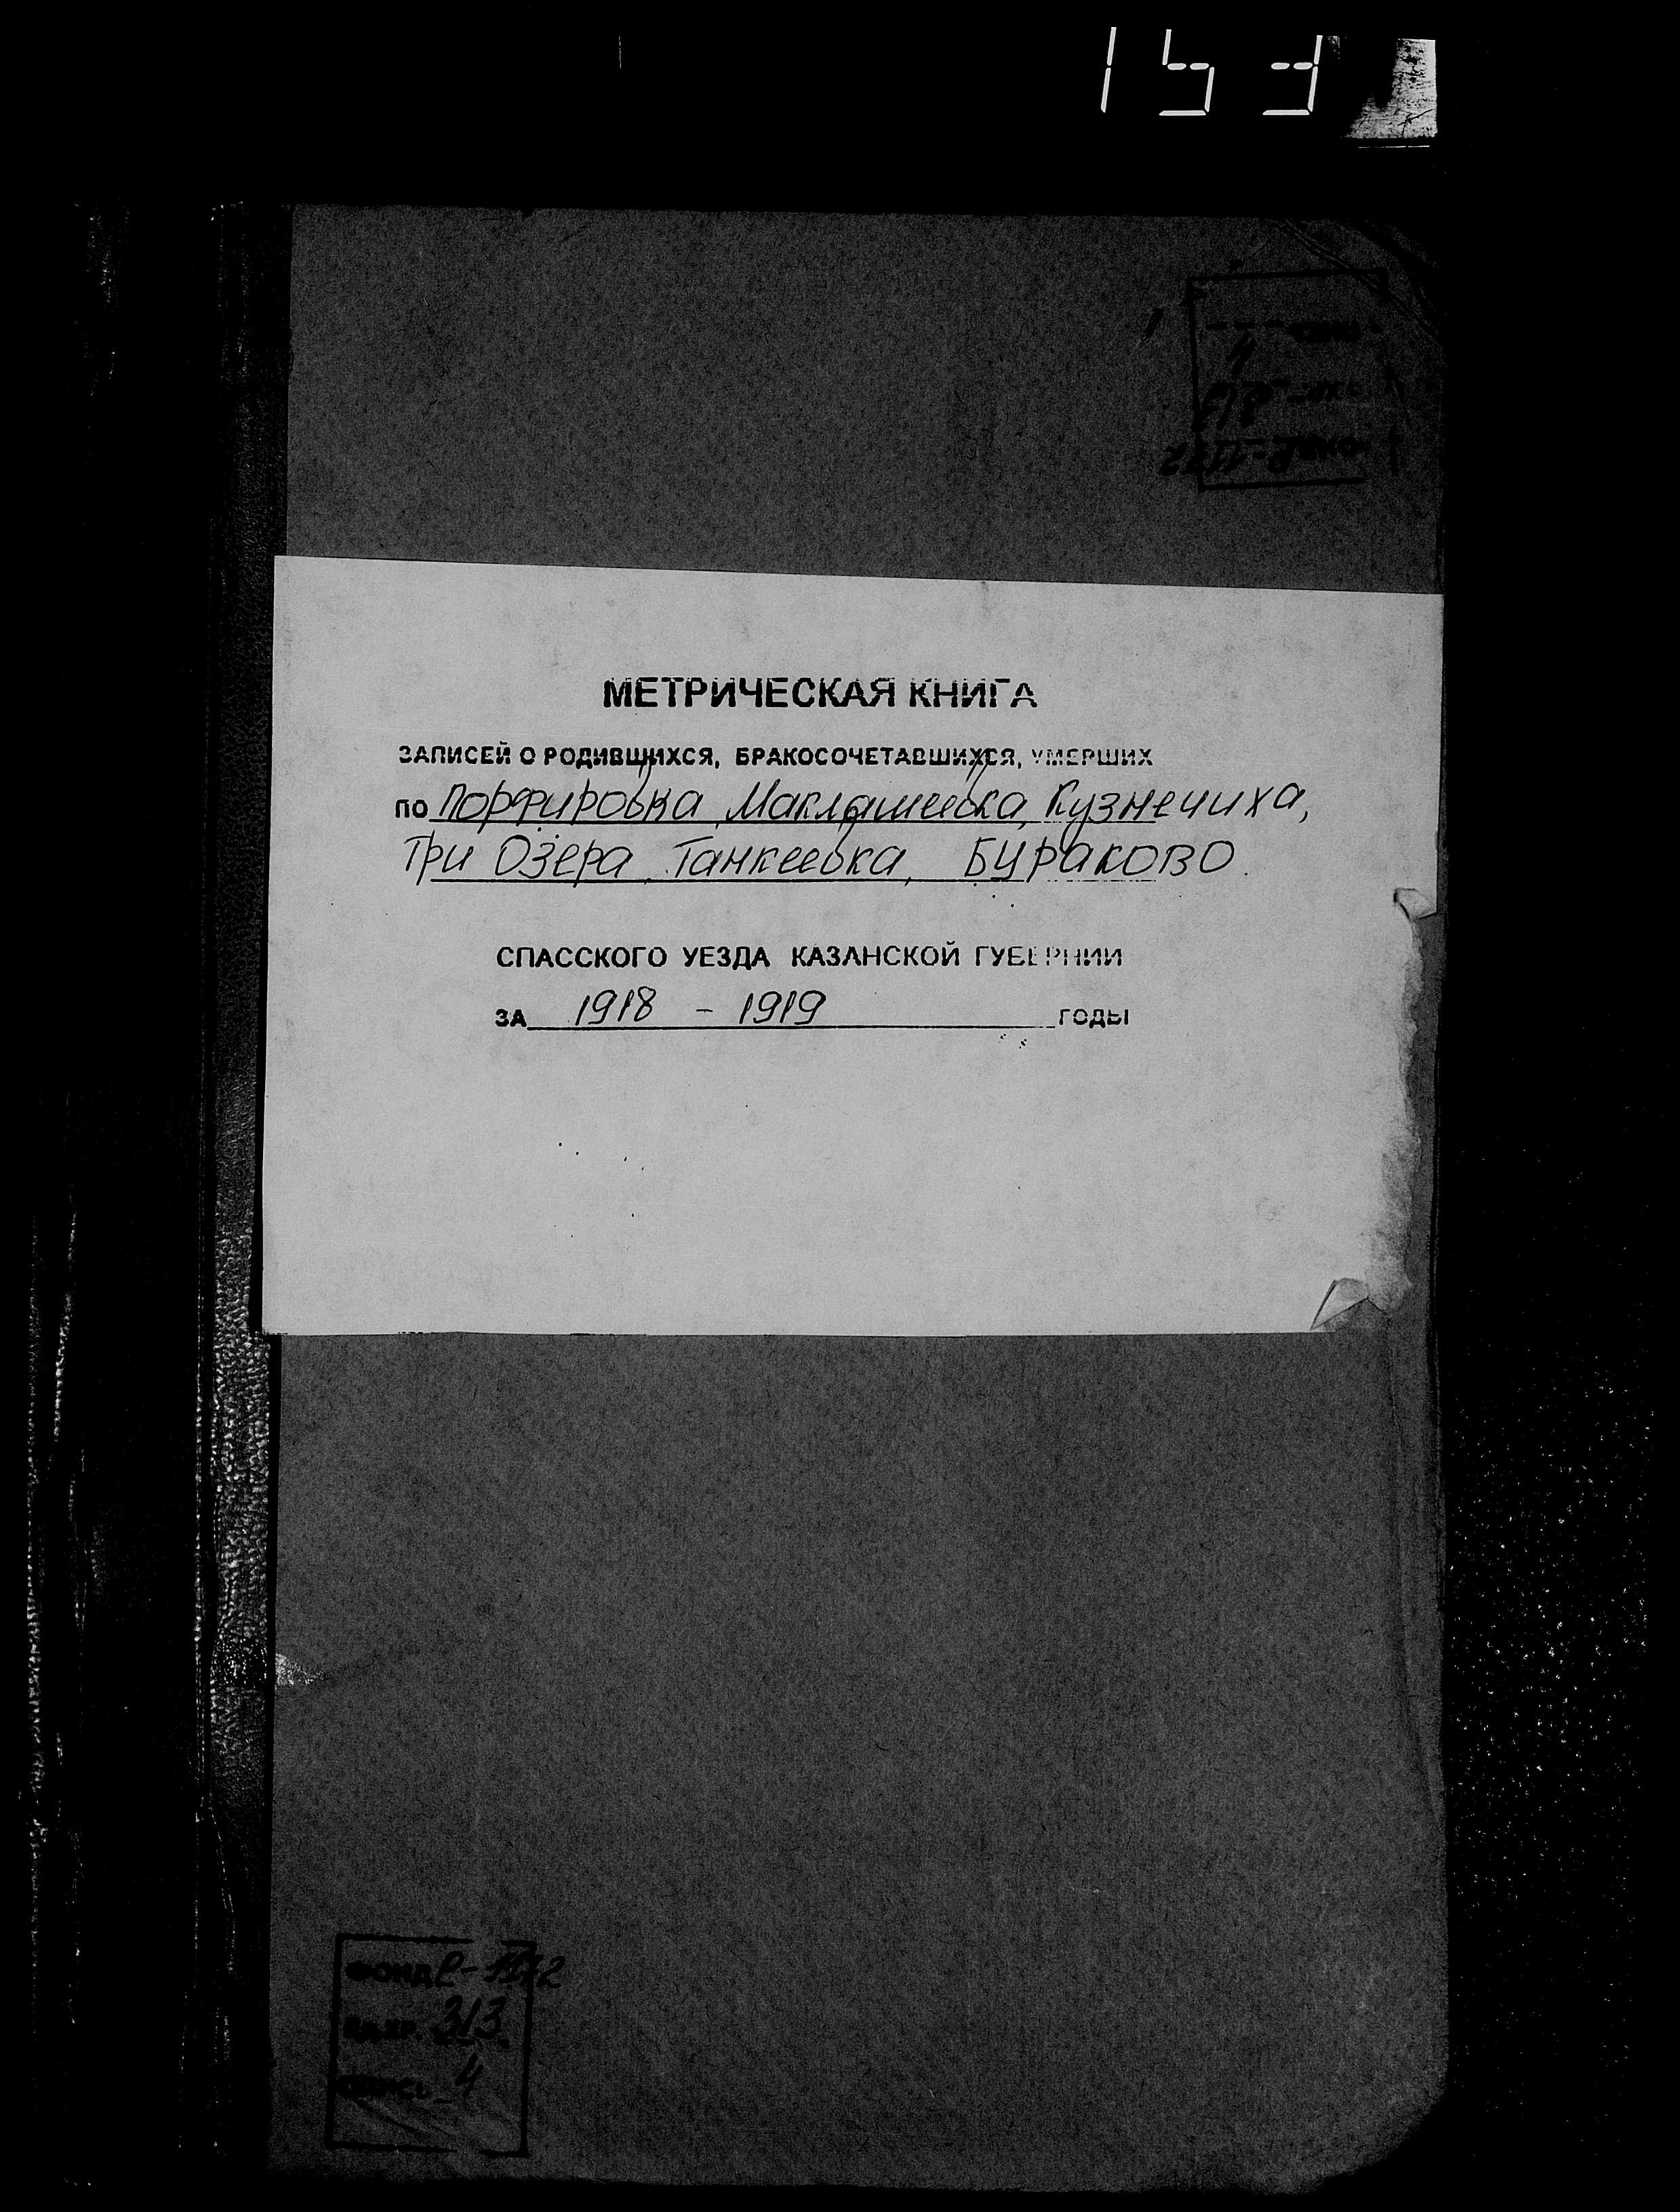 МЕТРИЧЕСКАЯ КНИГА
ЗАПИСЕЙ О РОДИВШИХСЯ, БРАКОСОЧЕТАВШИХСЯ, УМЕРШИХ
ПО Порфировка, Маклашеевка, Кузнечиха,
Три Озера, Танкеевка, Бураково.
СПАССКОГО УЕЗДА КАЗАНСКОЙ ГУБЕРНИИ
ЗА 1918 - 1919 ГОДЫ
ФОНД Р-1172
ЕД.ХР. 313
ОПИСЬ 4